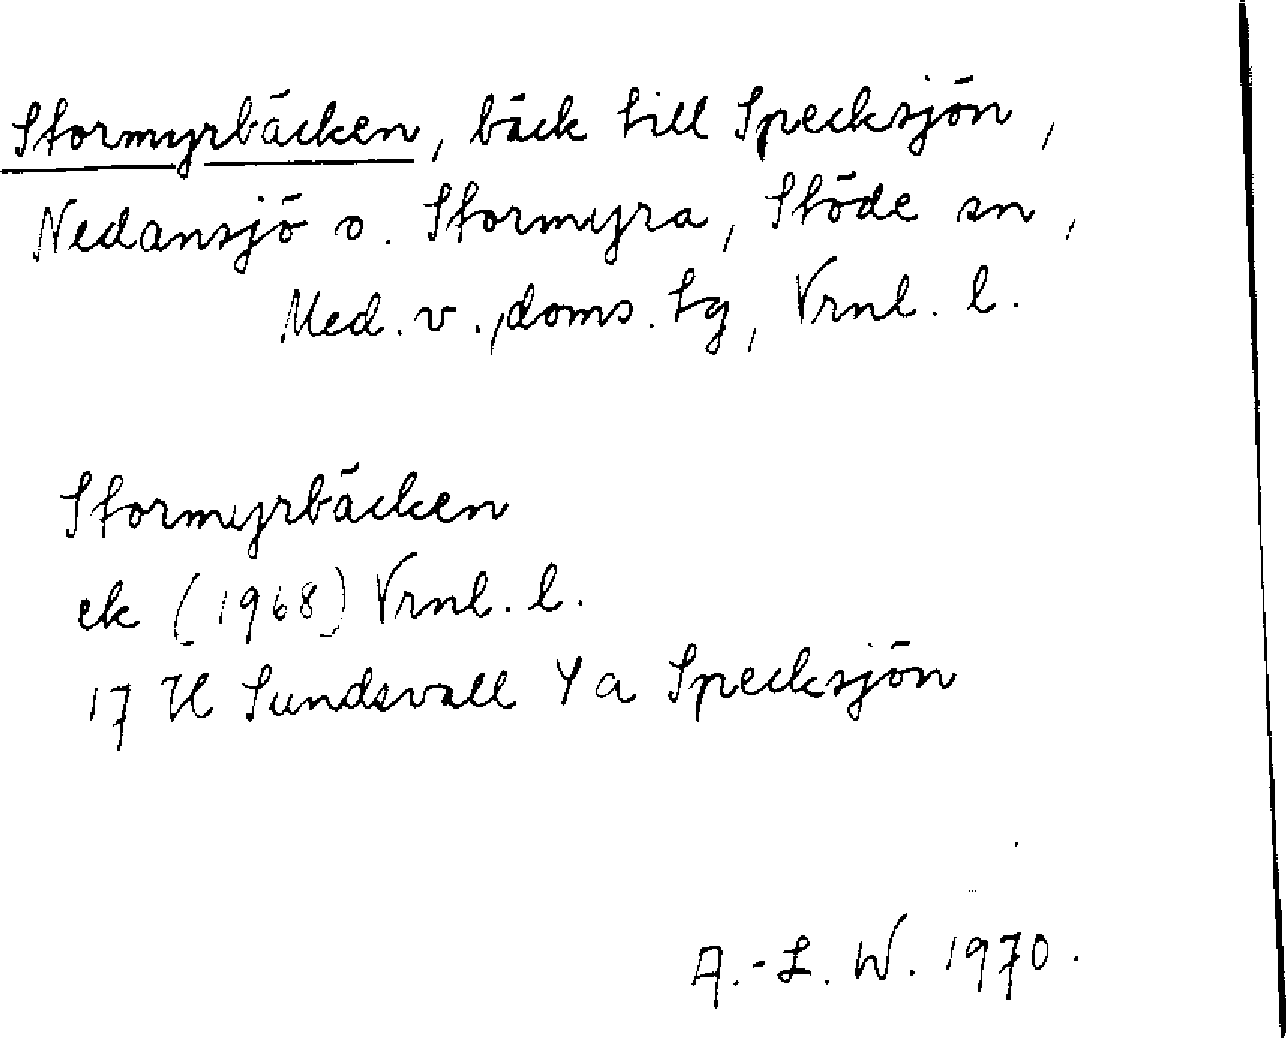 Stormyrbäcken, bäck till Specksjön,
Nedansjö o. Stormyra, Stöde sn,
Med. v., doms. tg, Vrnl. l.
Stormyrbäcken
ek (1968) Vrnl. l.
17 H Sundsvall 4 a Specksjön
A.-L. W. 1970.